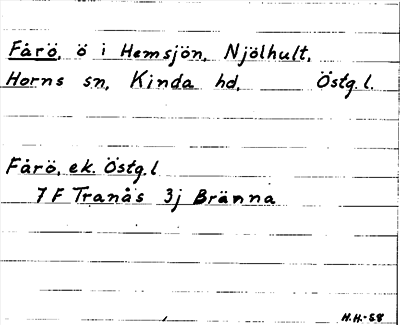 Fårö, ö i Hemsjön, Njölhult,
Horns sn, Kinda hd, Östg. l.
Fårö, ek. Östg. l
7 F Tranås 3j Bränna
H.H.-58